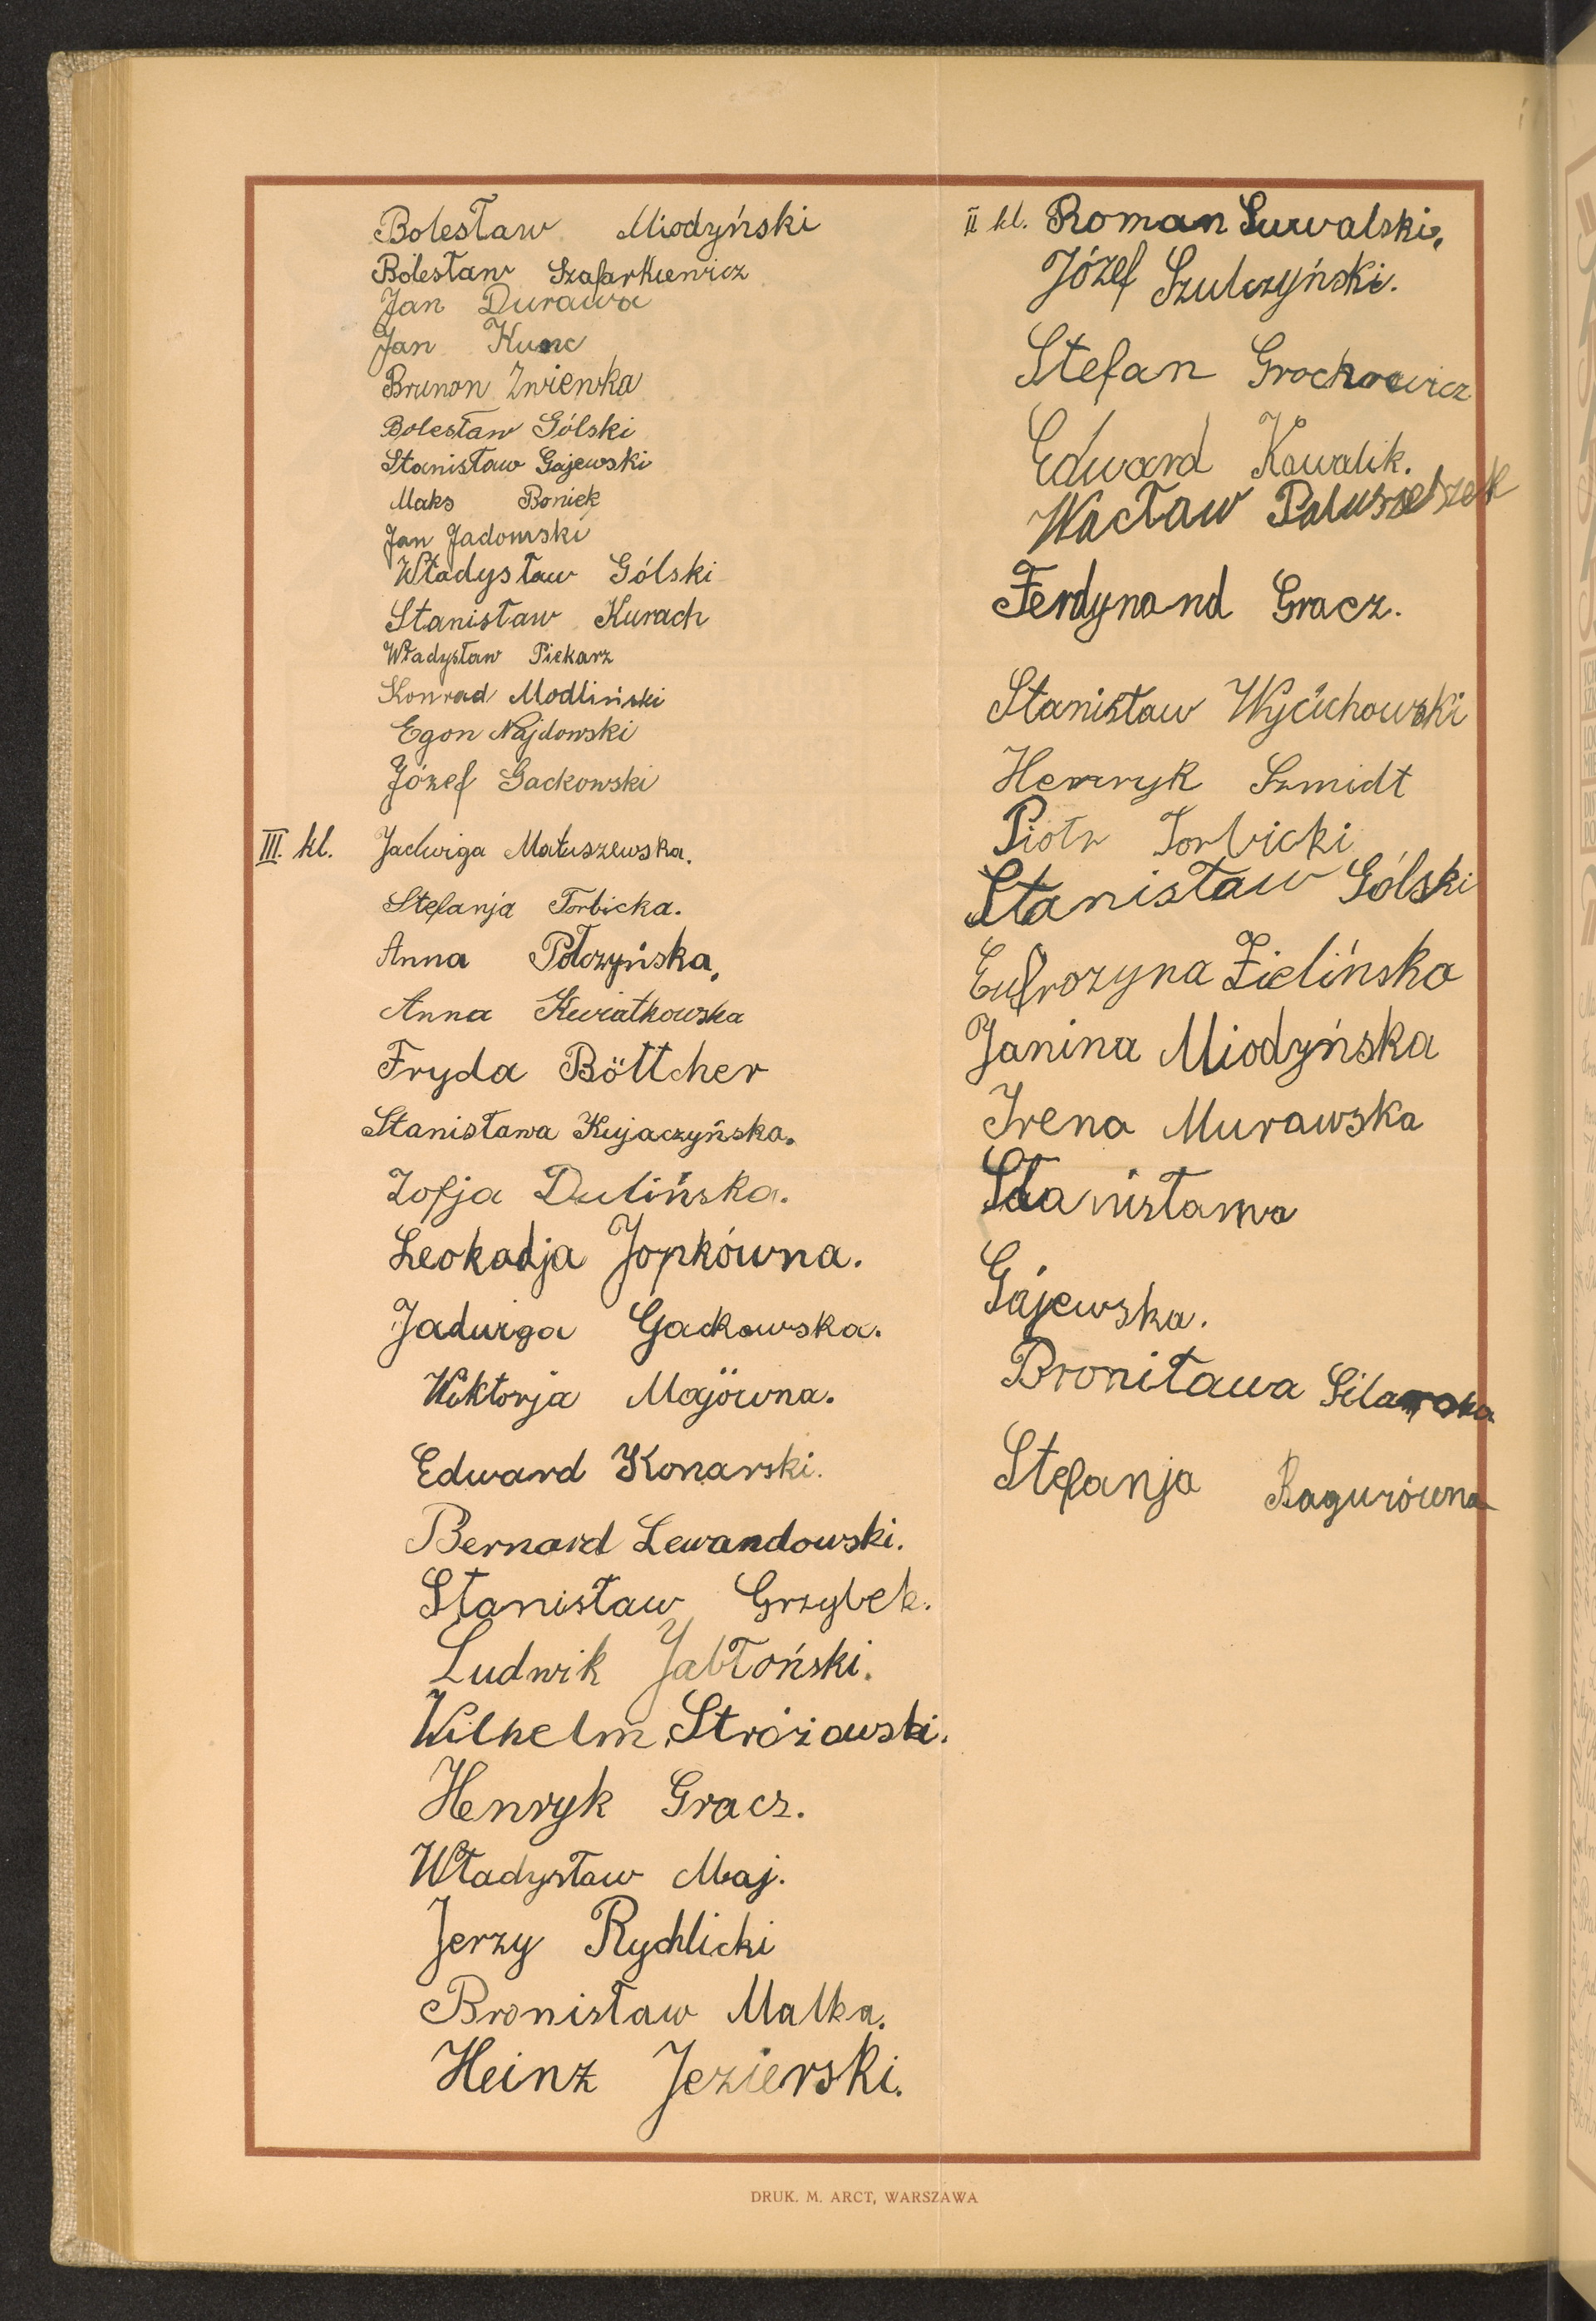 Bolesław Miodyński
Bolesław Szafarkiewicz
Jan Durawa
Jan Kunc
Brunon Zwiewka
Bolesław Gólski
Stanisław Gajewski
Maks Boniek
Jan Jadomski
Władysław Gólski
Stanisław Kurach
Władysław Piekarz
Konrad Modliński
Egon Najdowski
Józef Gackowski
III. kl. Jadwiga Matuszewska.
Stefanja Torbicka.
Anna Połczyńska,
Anna Kwiatkowska
Fryda Böttcher
Stanisława Kujaczyńska.
Zofja Dulińska.
Leokadja Jopkówna.
Jadwiga Gackowska.
Wiktorja Majówna.
Edward Konarski.
Bernard Lewandowski.
Stanisław Grzybek.
Ludwik Jabłoński.
Wilhelm Stróżowski.
Henryk Gracz.
Władysław Maj.
Jerzy Rychlicki
Bronisław Malka.
Heinz Jezierski.
II kl. Roman Suwalski,
Józef Szulczyński.
Stefan Grochowicz
Edward Kowalik.
Wacław
Ferdynand Gracz.
Stanisław Wycichowski
Henryk Szmidt
Piotr Torbicki
Stanisław Gólski
Eufrozyna Zielińska
Janina Miodyńska
Irena Murawska
Stanisława
Gajewska.
Bronitawa
Stefanja Ragurówna
DRUK. M. ARCT, WARSZAWA